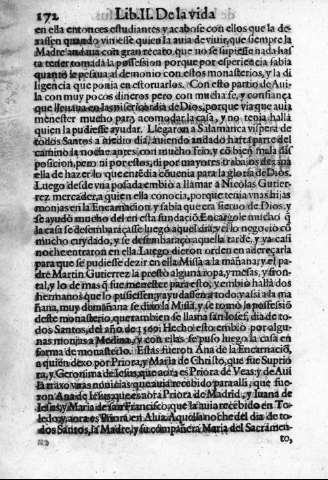 172 Lib.II. De la vida
en ella entonces estudiantes y acabose con ellos que la de-
xassen quando viniesse quien la auia de viuir, que siempre la
Madre andaua con gran recato, que no se supiesse nada has
ta tener tomada la possession porque por experiencia sabia
quanto le pesaua al demonio con estos monasterios, y la di
ligencia que ponia en estoruarlos. Con esto partio de Aui-
la con muy pocos dineros pero con mucha fe, y confiança
que lleuaua en la misericordia de Dios, porque via que auia
menester mucho para acomodar la casa, y no tenia hallà
quien la pudiesse ayudar. Llegaron a Salamanca vispera de
todos Santos a medio dia, auiendo andado harta parte del
camino la noche antes con mucho frio, y cõ bien mala dis
posicion, pero ni por estos, ni por mayores trabajos dexaua
ella de hazer lo que entẽdia cõuenia para la gloria de Dios.
Luego desde vna posada embio a llamar a Nicolas Gutier-
rez mercader, quien ella conocia, porque tenia vnas hijas
monjas en la Encarnacion, y sabia que era sieruo de Dios, y
se ayudò mucho del en esta fundaciõ. Encargole mucho q̃
la casa se desembaraçasse luego aquel dia, y el lo negociò cõ
mucho cuydado, y se desembaraçò aquella tarde, y ya casi
noche entraron en ella. Luego dieron orden en adereçarla
para que se pudiesse dezir en ella Missa a la mañana, y el pa
dre Martin Gutierrez la prestò alguna ropa, y mesas, y fron-
tal, y lo de mas q̃ fue menester para esto, y embiò hallà dos
hermanos que lo pusiessen, y ayudassen a todo, y assi a la ma
ñana, muy domañana se dixo la Missa, y se tomò la possessiõ
deste monasterio, que tambien se llama san Iosef, dia de to-
dos Santos, del año, de 1569. Hecho esto embiò por algu-
nas monjas a Medina, y con ellas se puso luego la casa en
forma de monasterio. Estas fueron Ana de la Encarnaciõ,
a quien dexo por Priora, y Maria de Christo, que fue Suprio
ra, y Geronima de Iesus, que aora es Priora de Veas: y de Aui
la traxo vnas nouicias que auia recebido para alli, que fue-
ron Ana de Iesus, que es aora Priora de Madrid, y Iuana de
Iesus, y Maria de san Francisco, que la auia recebido en To-
ledo, y aora es Priora en Alua. Aquella noche del dia de to
dos Santos, la Madre, y su compañera Maria del Sacramen-
to,